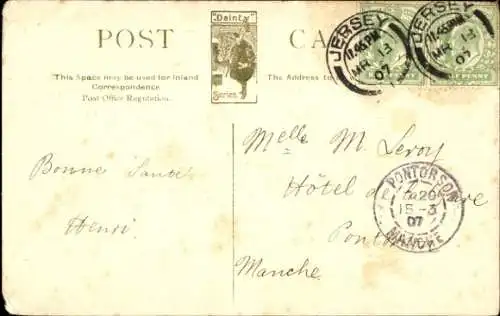 POST CA
"Dainty"
Series
This Space may be used for Inland
Correspondence
Post Office Regulation.
The Address to
JERSEY
11.45PM
MR 13
07
JERSEY
11.45PM
MR 13
07
HALF PENNY
Melle M. Leroy
Hôtel de la Gare
Pontorson
Manche.
PONTORSON
20
15-3
07
MANCHE
Bonne Santé
Henri.